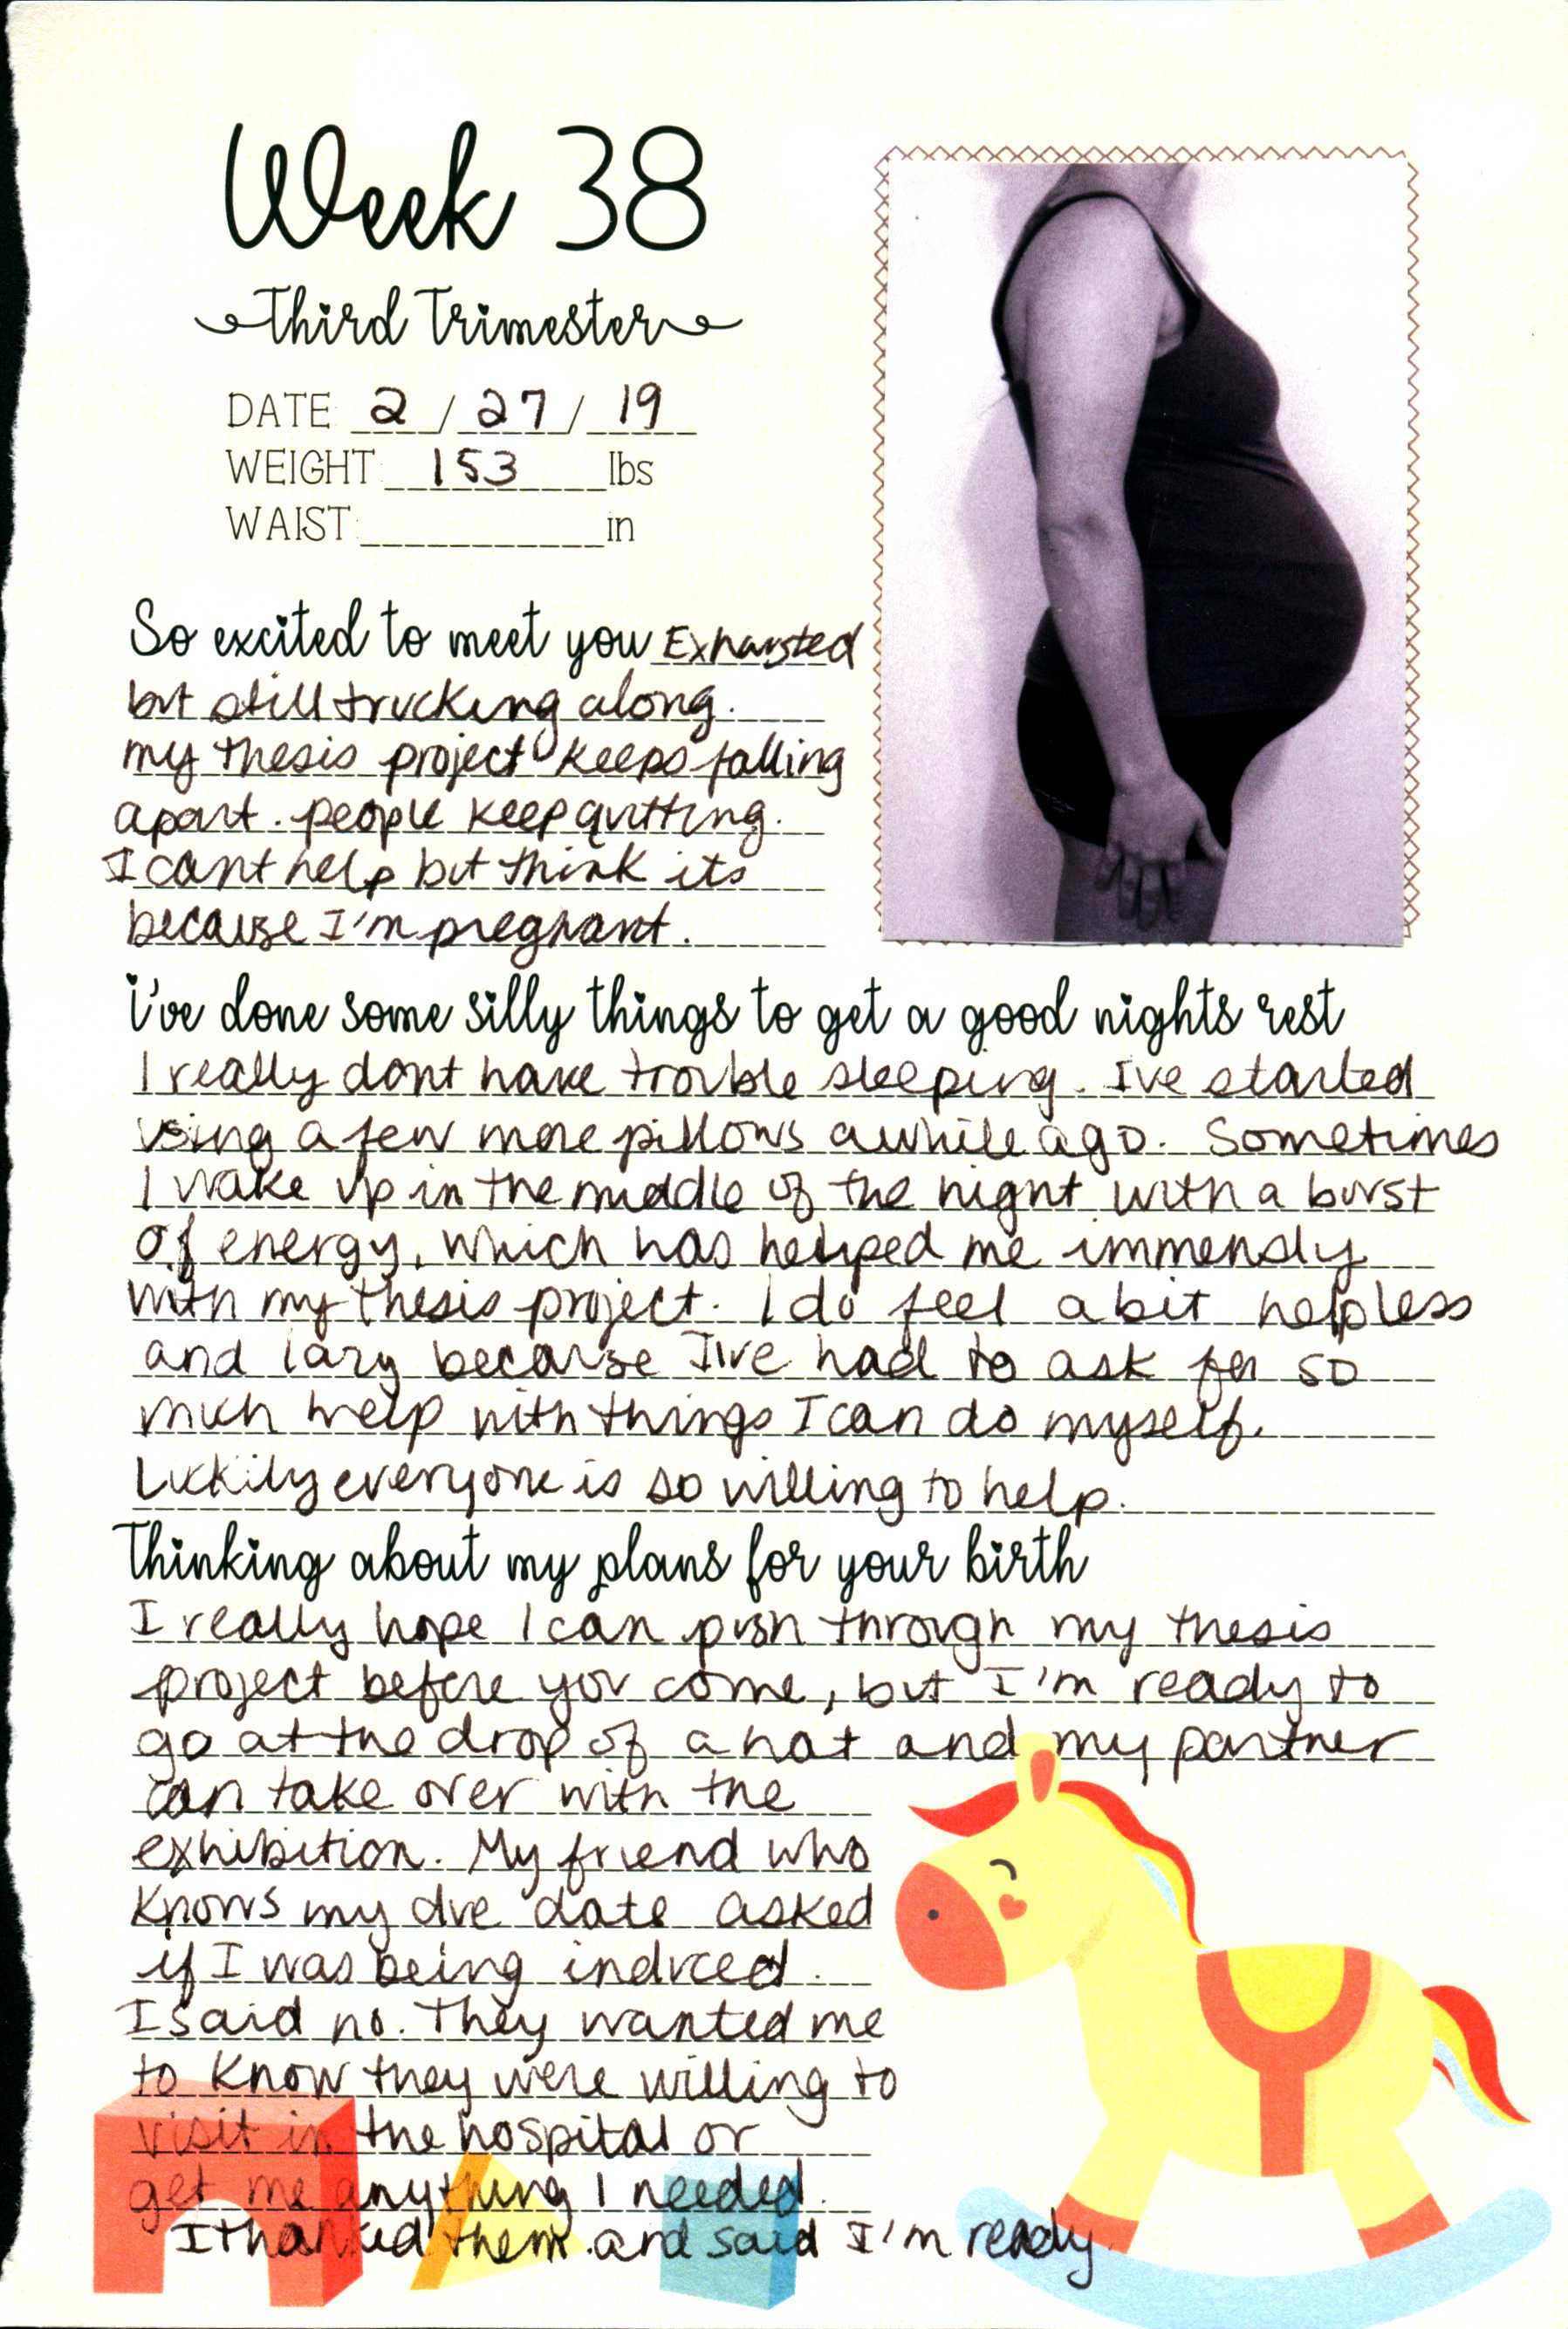 Week 38
Third Trimester
DATE 2 / 27 / 19
WEIGHT 153 lbs
WAIST in
So excited to meet you Exhausted
but still trucking along.
my thesis project keeps falling
apart. people keep quitting.
I cant help but think its
because I'm pregnant.
i've done some silly things to get a good nights rest
I really dont have trouble sleeping. Ive started
using a few more pillows awhile ago. Sometimes
I wake up in the middle of the night with a burst
of energy, which has helped me immensly
with my thesis project. I do feel a bit helpless
and lazy because I've had to ask for so
much help with things I can do myself.
Luckily everyone is so willing to help.
Thinking about my plans for your birth
I really hope I can push through my thesis
project before you come, but I'm ready to
go at the drop of a hat and my partner
can take over with the
exhibition. My friend who
knows my due date asked
if I was being induced.
I said no. They wanted me
to know they were willing to
visit in the hospital or
get me anything I needed.
I thanked them and said I'm ready.